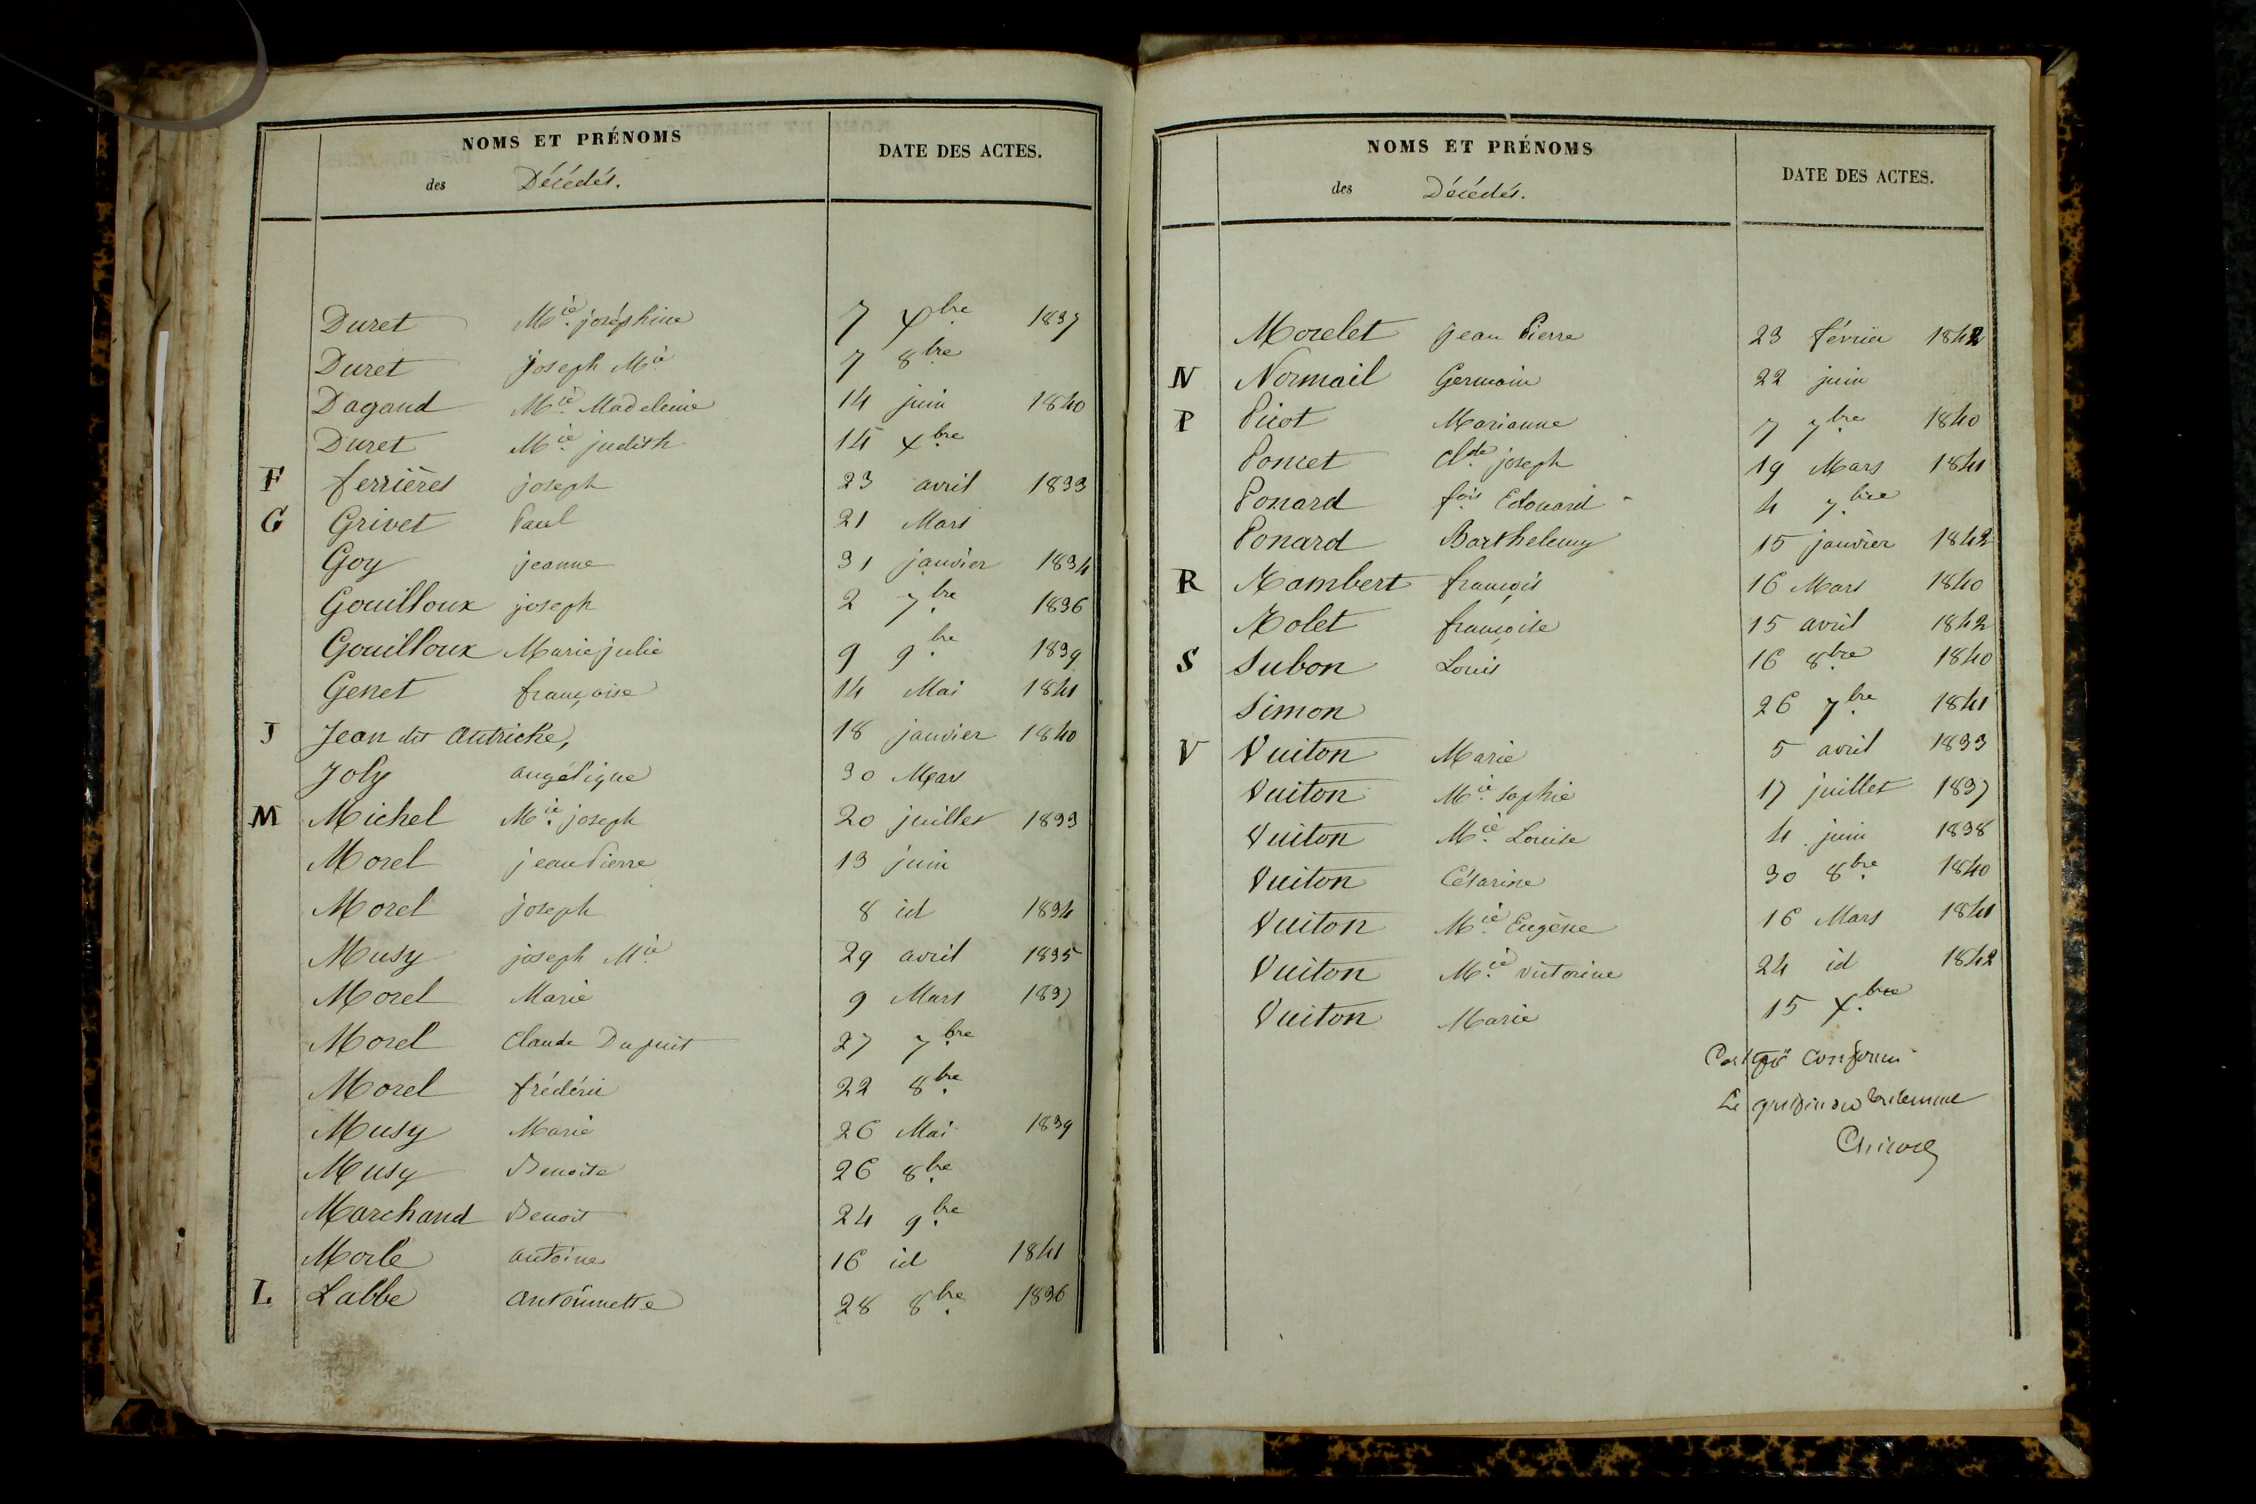 NOMS ET PRÉNOMS
DATE DES ACTES.
des Décédés.
Duret Mie. joséphine 7 Xbre 1837
Duret joseph Mie 7 8bre
Dagand Mie. Madeleine 14 juin 1840
Duret Mie. judith 14 Xbre
F ferrières joseph 23 avril 1833
G Grivet Paul 21 Mars
Goy jeanne 31 janvier 1834
Gouilloux joseph 2 7bre 1836
Gouilloux Marie julie 9 9bre 1839
Genet françoise 14 Mai 1841
J Jean dit Autriche, 18 janvier 1840
Joly angélique 30 Mars
M Michel Mie. joseph 20 juillet 1833
Morel jean Pierre 13 juin
Morel joseph 8 id 1834
Musy joseph Mie 29 avril 1835
Morel Marie 9 Mars 1837
Morel Claude Dupuit 27 7bre
Morel frédéric 22 8bre
Musy Marie 26 Mai 1839
Musy Benoite 26 8bre
Marchand Benoit 24 9bre
Morle antoine 16 id 1841
L Labbe antoinnette 28 8bre 1836
NOMS ET PRÉNOMS
DATE DES ACTES.
des Décédés.
Morelet jean Pierre 23 février 1842
N Normail Germain 22 juin
P Picot Marianne 7 7bre 1840
Poncet Clde joseph 19 Mars 1841
Ponard fois Edouard 4 7bre
Ponard Barthelemy 15 janvier 1842
R Rambert françois 16 Mars 1840
Rolet françoise 15 avril 1842
S Subon Louis 16 8bre 1840
Simon 26 7bre 1841
V Vuiton Marie 5 avril 1833
Vuiton Mie. sophie 17 juillet 1837
Vuiton Mie. Louise 4 juin 1838
Vuiton Césarine 30 8bre 1840
Vuiton Mie. Eugène 16 Mars 1841
Vuiton Mie. victorine 24 id 1842
Vuiton Marie 15 Xbre
Certifié conforme
Le